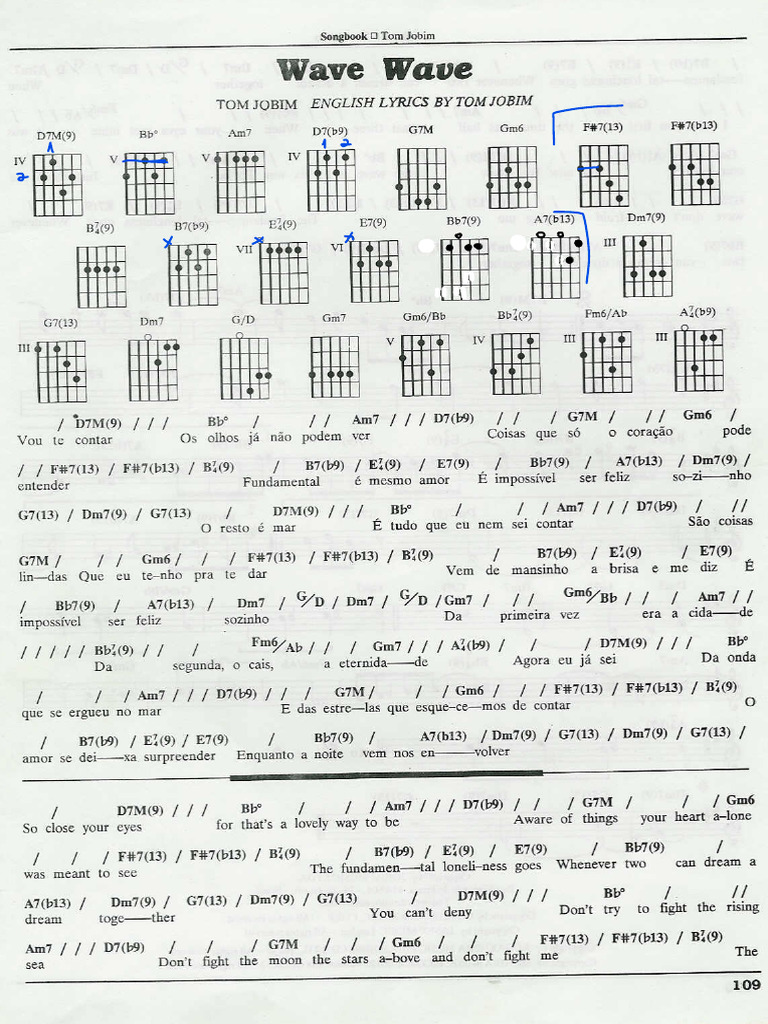 Songbook □ Tom Jobim
Wave Wave
TOM JOBIM ENGLISH LYRICS BY TOM JOBIM
D7M(9) Bb° Am7 D7(b9) G7M Gm6 F#7(13) F#7(b13)
1 1 2
IV V V IV
2
B7/4(9) B7(b9) E7/4(9) E7(9) Bb7(9) A7(b13) Dm7(9)
x VII x VI x III
G7(13) Dm7 G/D Gm7 Gm6/Bb Bb7/4(9) Fm6/Ab A7/4(b9)
III V IV III III
/ D7M(9) / / / Bb° / / / Am7 / / / D7(b9) / / G7M / / / Gm6 /
Vou te contar Os olhos já não podem ver Coisas que só o coração pode
/ / F#7(13) / F#7(b13) / B7/4(9) / B7(b9) / E7/4(9) / E7(9) / Bb7(9) / A7(b13) / Dm7(9) /
entender Fundamental é mesmo amor É impossível ser feliz so-zi—nho
G7(13) / Dm7(9) / G7(13) / D7M(9) / / / Bb° / / / Am7 / / / D7(b9) / / /
O resto é mar É tudo que eu nem sei contar São coisas
G7M / / / Gm6 / / / F#7(13) / F#7(b13) / B7/4(9) / B7(b9) / E7/4(9) / E7(9)
lin—das Que eu te-nho pra te dar Vem de mansinho a brisa e me diz É
/ Bb7(9) / A7(b13) / Dm7 / G/D / Dm7 / G/D / Gm7 / / / Gm6/Bb / / / Am7 / /
impossível ser feliz sozinho Da primeira vez era a cida—de
/ / / / / Bb7/4(9) / / / Fm6/Ab / / / Gm7 / / / A7/4(b9) / / / D7M(9) / / / Bb°
Da segunda, o cais, a eternida—de Agora eu já sei Da onda
/ / / Am7 / / / D7(b9) / / / G7M / / / Gm6 / / / F#7(13) / F#7(b13) / B7/4(9) /
que se ergueu no mar E das estre-las que esque-ce—mos de contar O
/ B7(b9) / E7/4(9) / E7(9) / Bb7(9) / A7(b13) / Dm7(9) / G7(13) / Dm7(9) / G7(13) /
amor se dei—xa surpreender Enquanto a noite vem nos en—volver
/ D7M(9) / / / Bb° / / / Am7 / / / D7(b9) / / / G7M / / / Gm6
So close your eyes for that's a lovely way to be Aware of things your heart a-lone
/ / / F#7(13) / F#7(b13) / B7/4(9) / B7(b9) / E7/4(9) / E7(9) / Bb7(9) /
was meant to see The fundamen—tal loneli-ness goes Whenever two can dream a
A7(b13) / Dm7(9) / G7(13) / Dm7(9) / G7(13) / D7M(9) / / / Bb° / / /
dream toge—ther You can't deny Don't try to fight the rising
Am7 / / / D7(b9) / / / G7M / / / Gm6 / / / F#7(13) / F#7(b13) / B7/4(9) /
sea Don't fight the moon the stars a-bove and don't fight me The
109